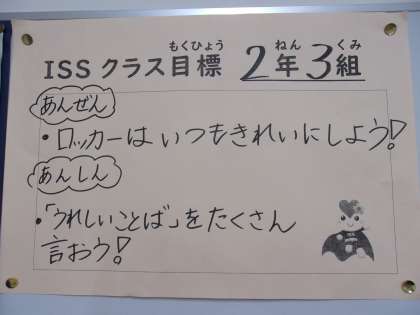 もくひょう ねん くみ
ISS クラス目標 2年3組
あんぜん
・ロッカーは いつもきれいにしよう!
あんしん
・「うれしいことば」をたくさん
言おう!